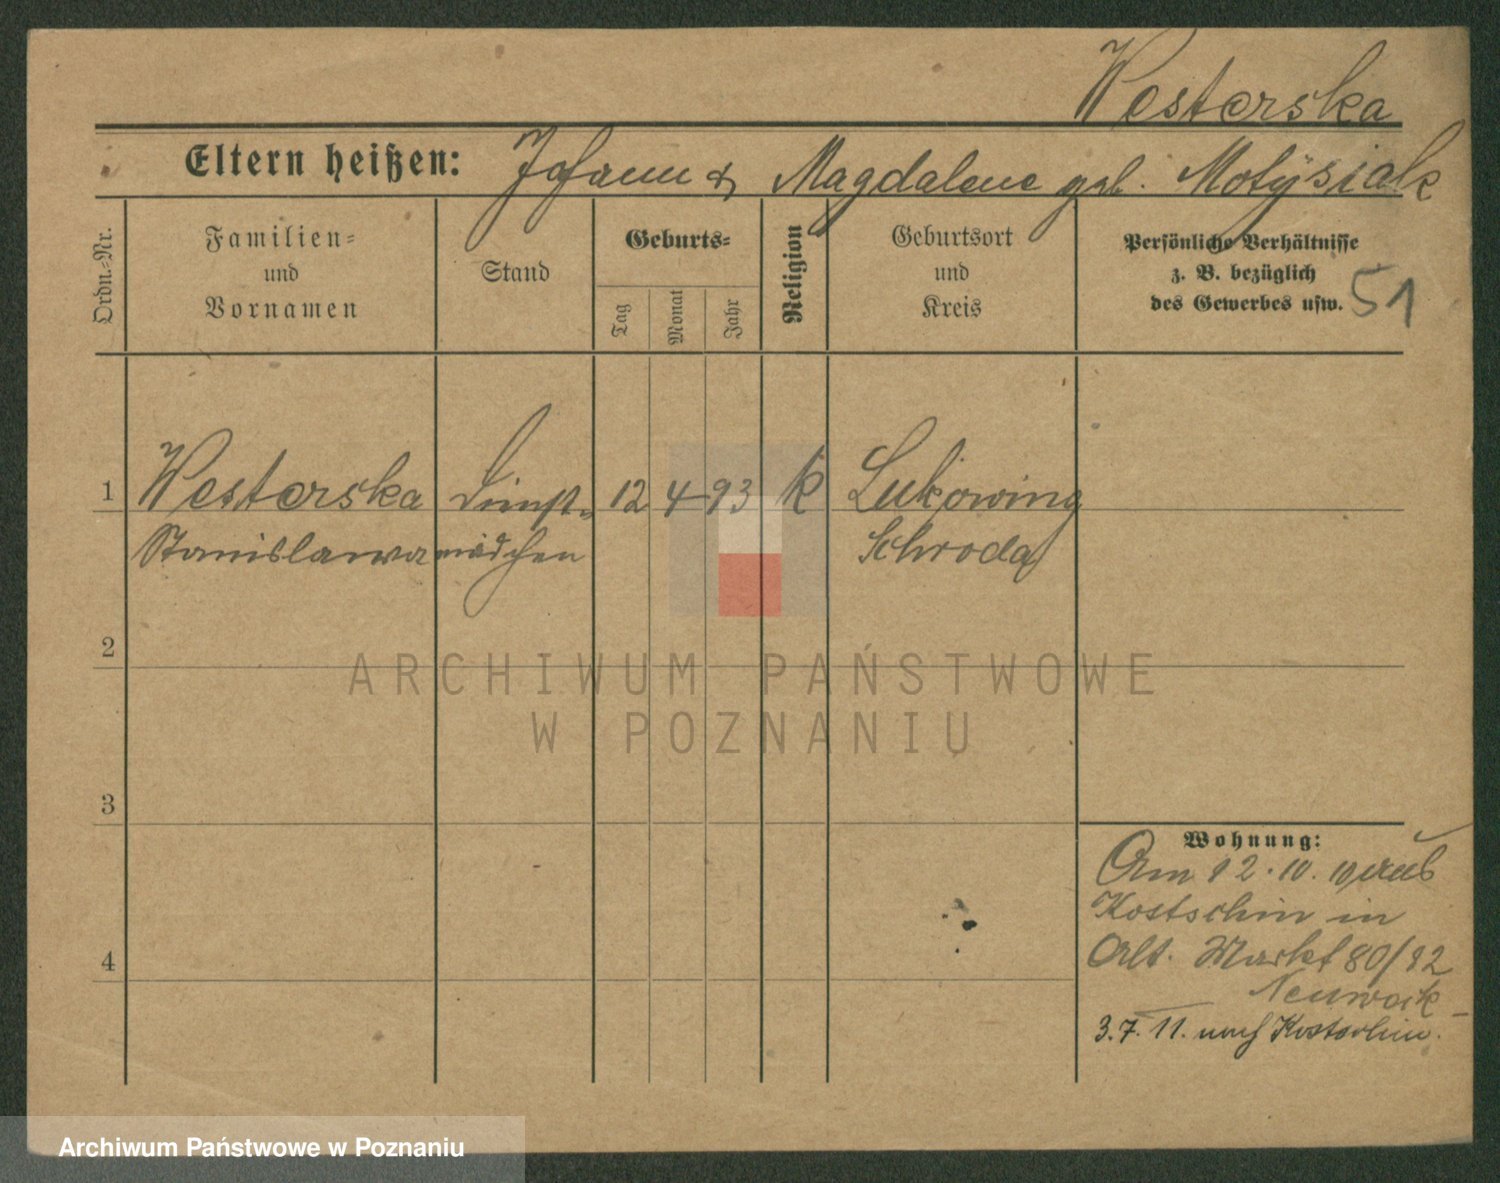 Westerska
Eltern heißen: Johann & Magdalene geb. Motÿsiak
Ordn.-Nr.
Familien-
und
Vornamen
Stand
Geburts-
Tag
Monat
Jahr
Religion
Geburtsort
und
Kreis
Persönliche Verhältnisse
z. B. bezüglich
des Gewerbes usw.
51
1 Westerska Dienst- 12 4 93 k Lukowing
Stanislawa mädchen Schroda
2
3
4
Wohnung:
Am 12.10.10 aus
Kostschin in
Alt. Markt 80/82
3.7.11. nach Kostschin.
ARCHIWUM PAŃSTWOWE
W POZNANIU
Archiwum Państwowe w Poznaniu